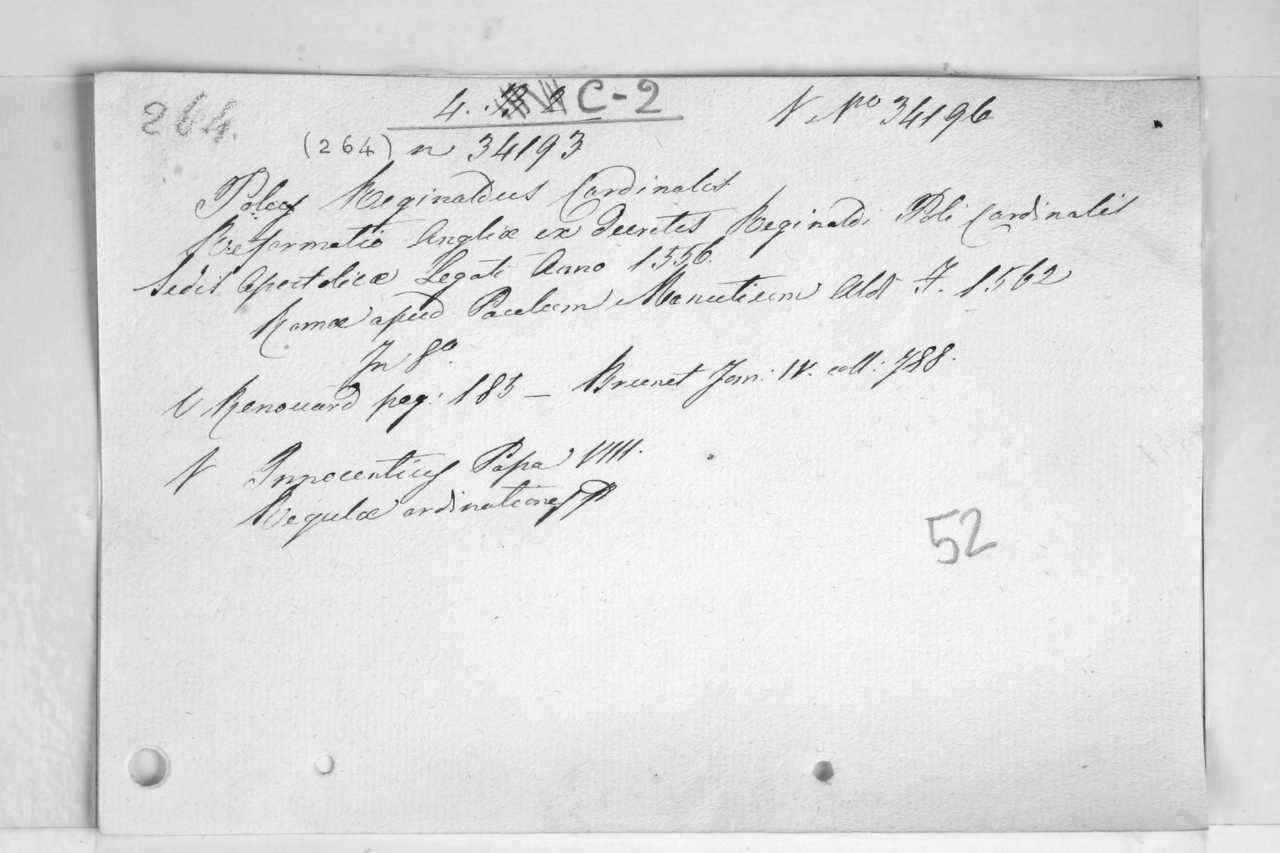 264.
4. C-2
N Nro 34196
(264) n 34193
Polus Reginaldus Cardinalis
Reformatio Angliæ ex Decretis Reginaldi Poli Cardinalis
Sedis Apostolicæ Legati Anno 1556.
Romæ apud Paulum Manutium Ald F. 1562
In 8o.
V Renouard pag: 185 — Brunet Tom: IV. coll: 788.
V Innocentius Papa VIII.
Regulæ ordinationes
52